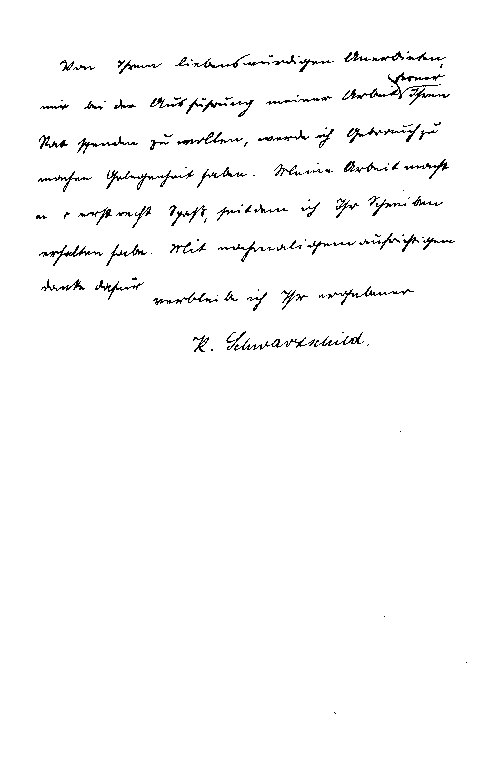 Von Ihrem liebenswürdigen Anerbieten,
mir bei der Ausführung meiner Arbeit ferner Ihren
Rat spenden zu wollen, werde ich Gebrauch zu
machen Gelegenheit haben. Meine Arbeit macht
erst recht Spaß, seitdem ich Ihr Schreiben
erhalten habe. Mit nochmaligem aufrichtigem
Danke dafür
verbleibe ich Ihr ergebener
K. Schwarzschild.